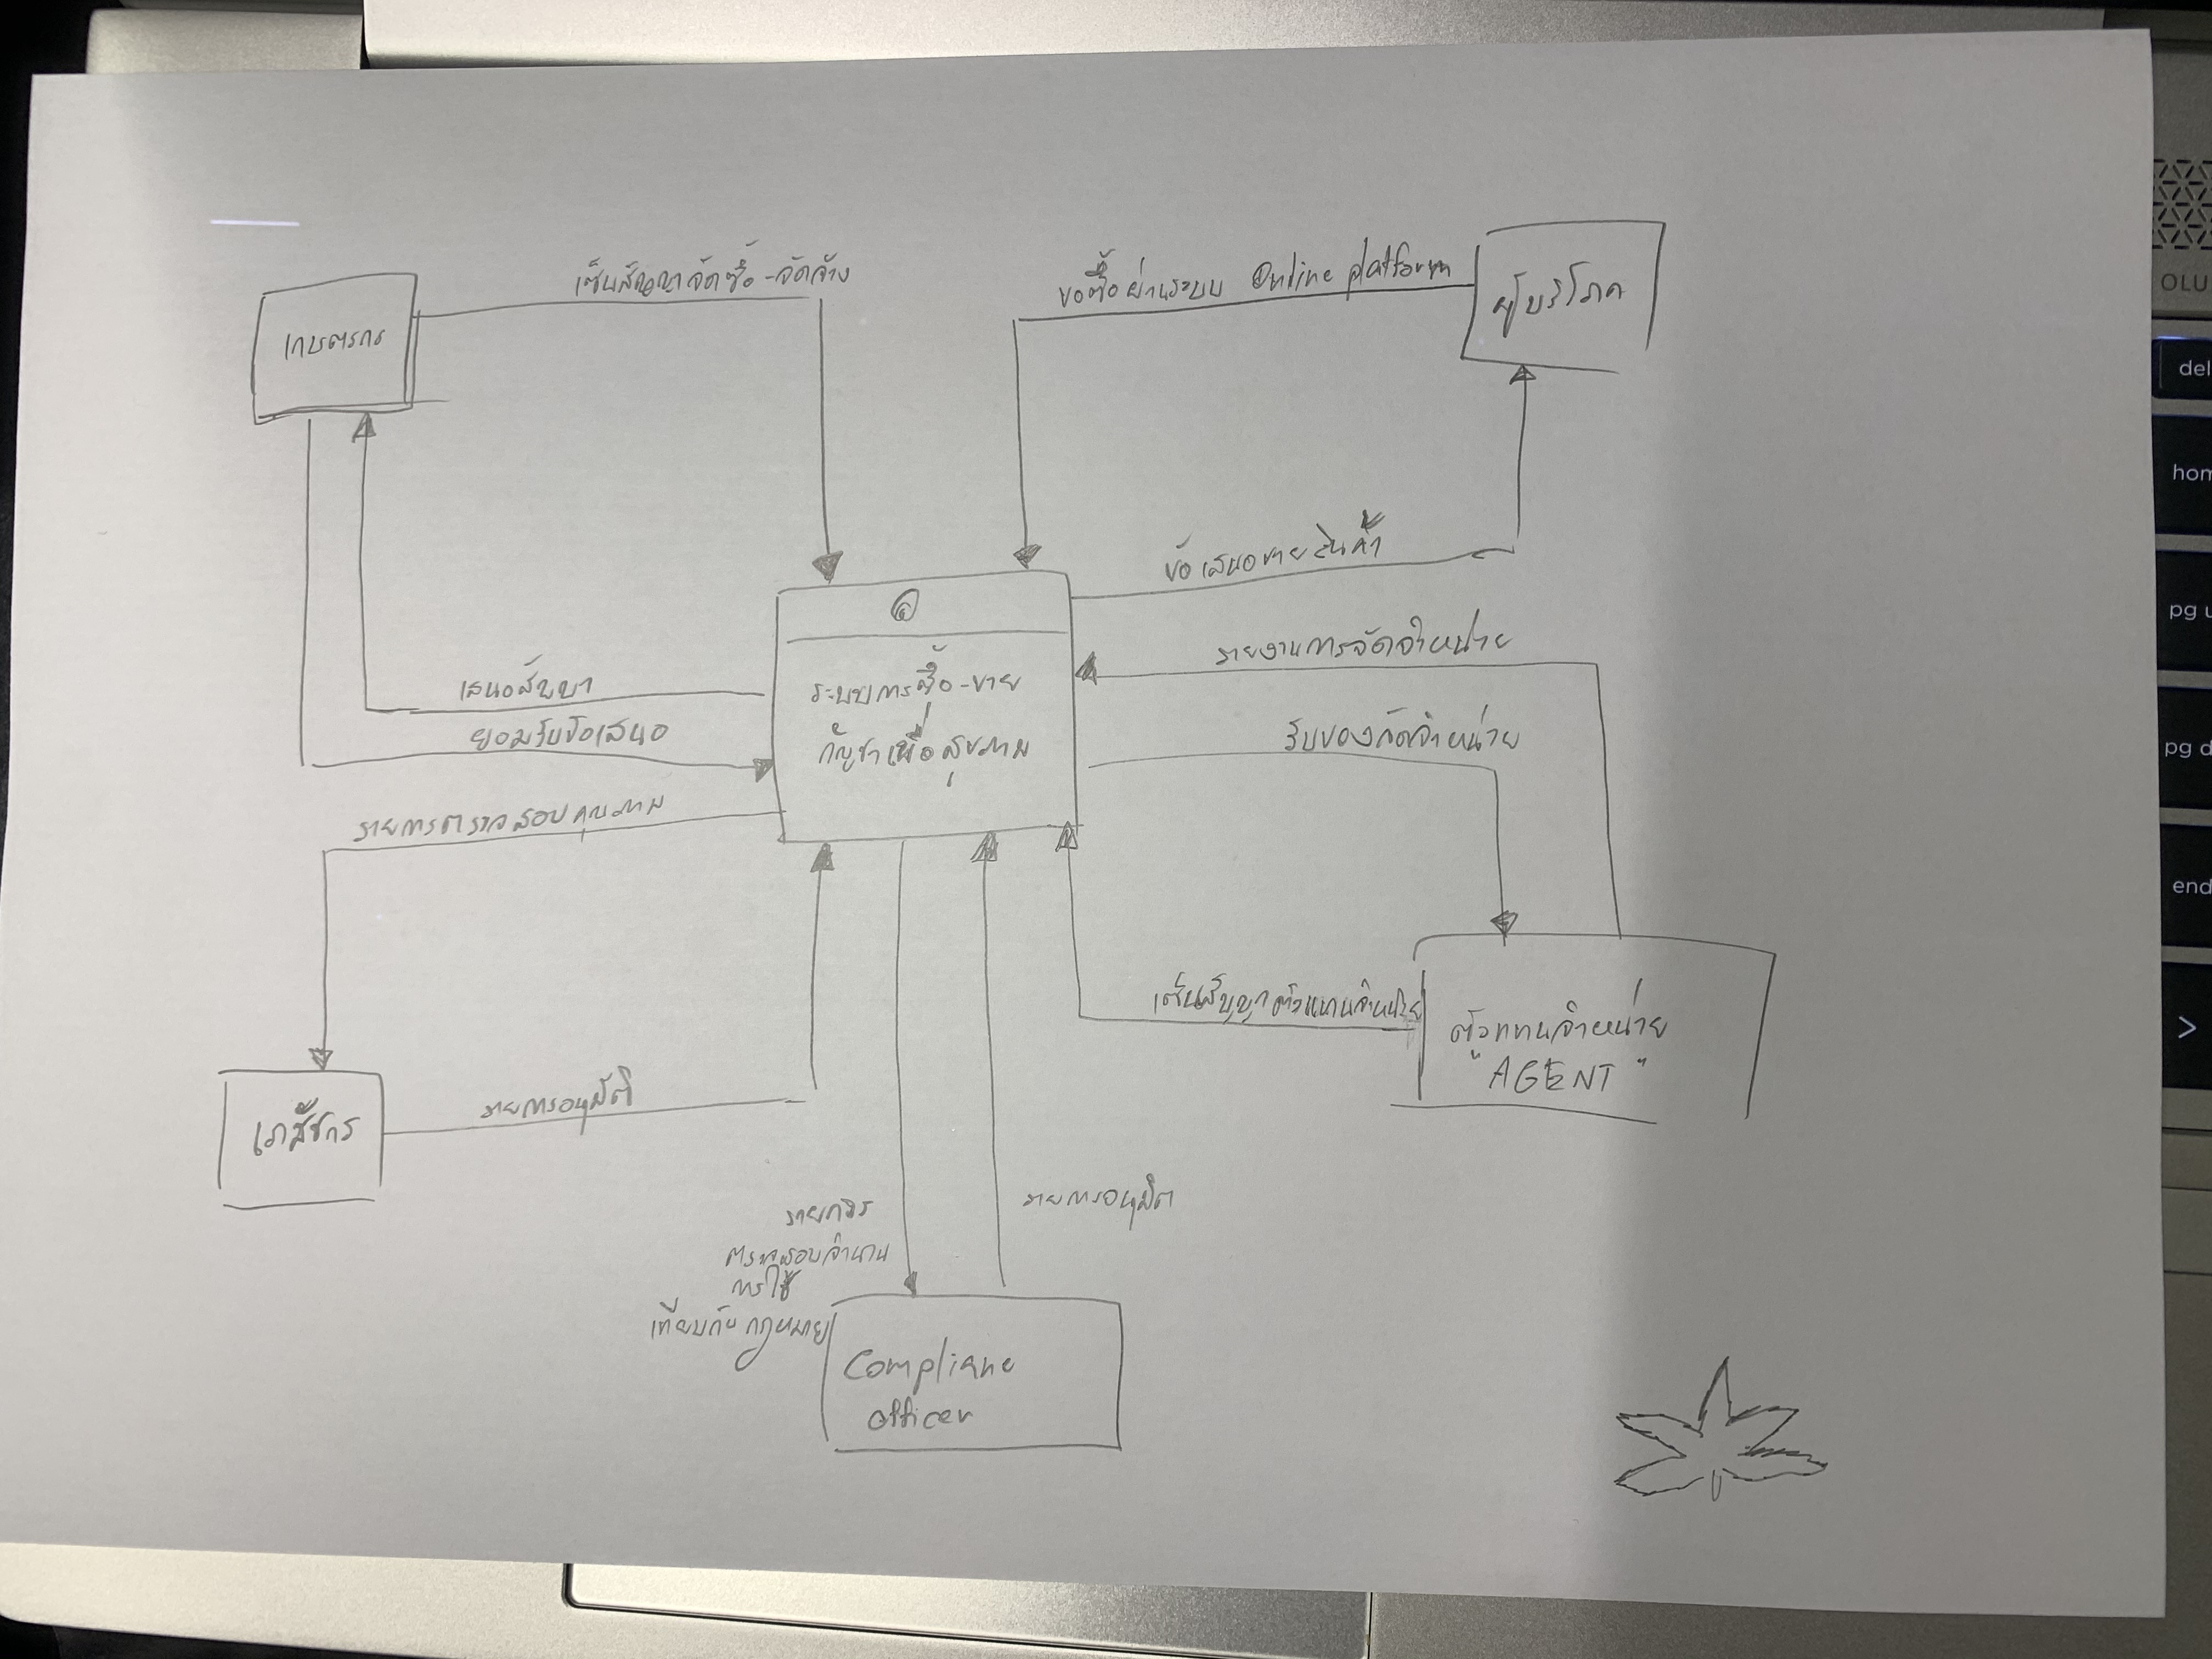 เซ็นสัญญาจัดซื้อ-จัดจ้าง
ขอซื้อผ่านระบบ Online platform
ผู้บริโภค
เกษตรกร
ข้อเสนอขายสินค้า
รายงานการจัดจำหน่าย
ระบบการซื้อ-ขาย
กัญชาเพื่อสุขภาพ
เสนอสัญญา
ยอมรับข้อเสนอ
รับของจัดจำหน่าย
รายการตรวจสอบคุณภาพ
เซ็นสัญญาตัวแทนจำหน่าย
ตัวแทนจำหน่าย
"AGENT"
เภสัชกร
รายการอนุมัติ
รายการ
ตรวจสอบจำนวน
การใช้
เทียบกับกฎหมาย
รายการอนุมัติ
Compliane
officer
OLU
del
hom
pg u
pg d
end
>